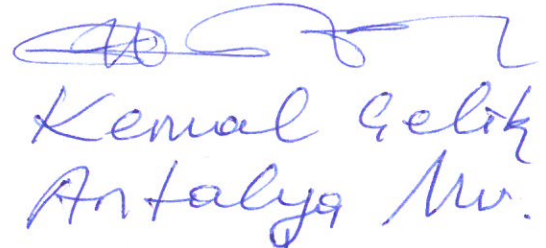 Kemal Çelik
Antalya Mv.